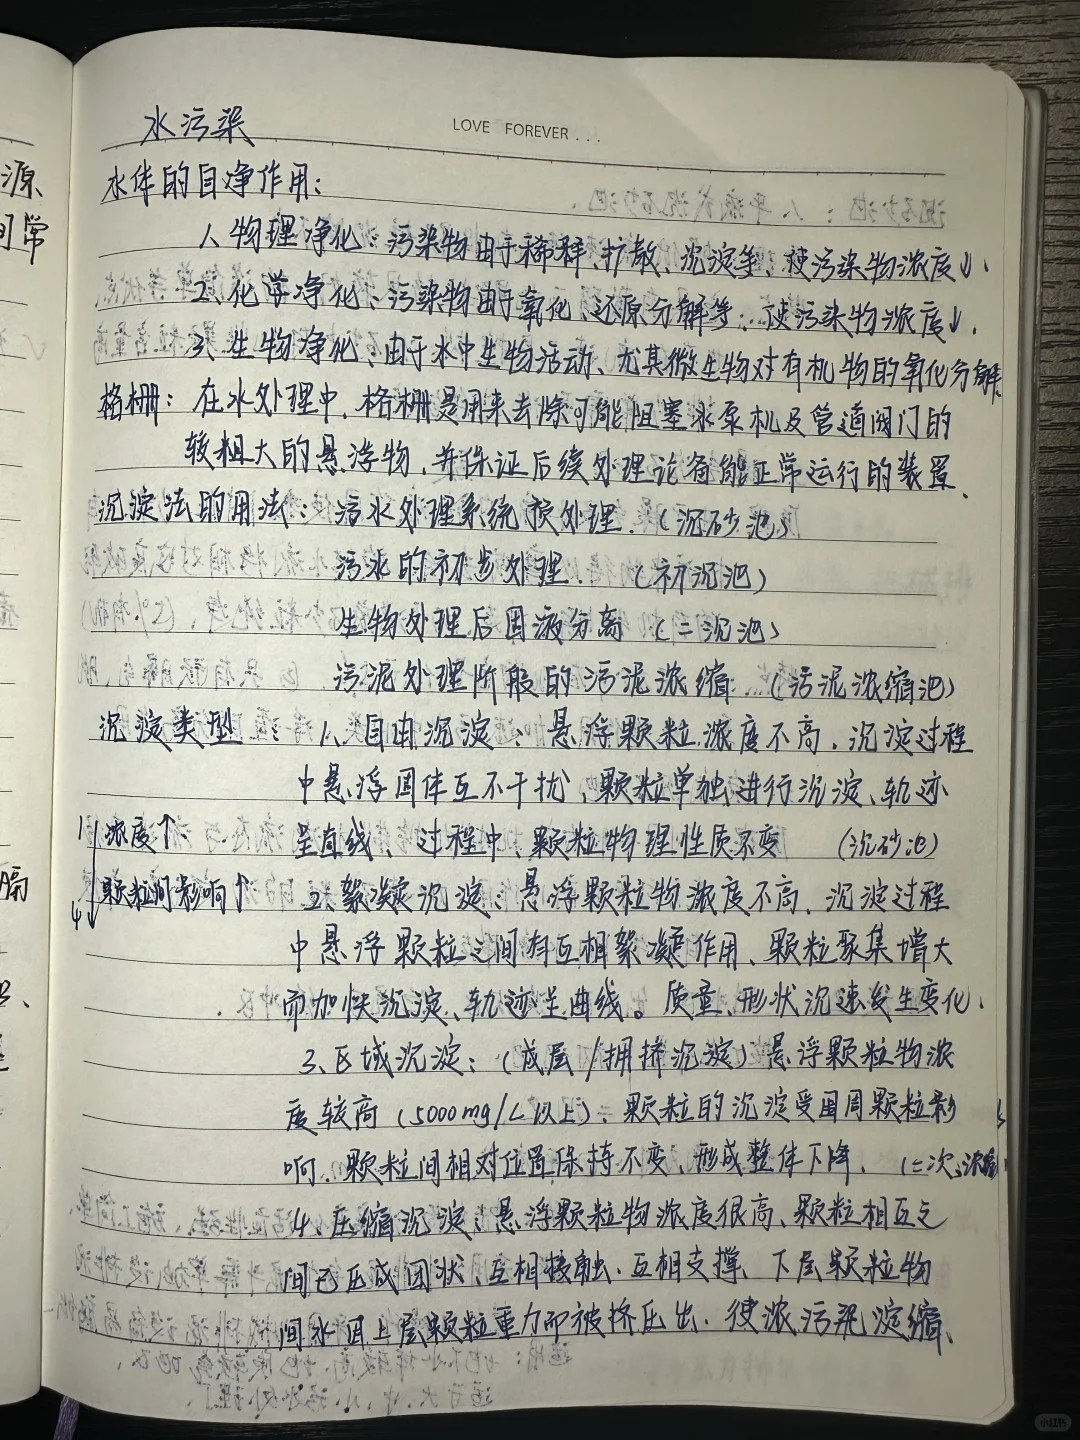 水污染
LOVE FOREVER...
水体的自净作用：
1、物理净化：污染物由于稀释、扩散、沉淀等、使污染物浓度↓.
2、化学净化：污染物由于氧化、还原分解等、使污染物浓度↓.
3、生物净化、由于水中生物活动、尤其微生物对有机物的氧化分解.
格栅：在水处理中、格栅是用来去除可能阻塞水泵机及管道阀门的
较粗大的悬浮物，并保证后续处理设备能正常运行的装置、
沉淀法的用法：污水处理系统预处理.（沉砂池）
污水的初步处理.（初沉池）
生物处理后固液分离（二沉池）
污泥处理阶段的污泥浓缩.（污泥浓缩池）
沉淀类型：1、自由沉淀：悬浮颗粒浓度不高.沉淀过程
中悬浮固体互不干扰，颗粒单独进行沉淀、轨迹
呈直线、过程中、颗粒物理性质不变（沉砂池）
1 浓度↑
4 颗粒间影响↑
2、絮凝沉淀：悬浮颗粒物浓度不高、沉淀过程
中悬浮颗粒之间有互相絮凝作用、颗粒聚集增大
而加快沉淀、轨迹呈曲线。质量、形状沉速发生变化.
3、区域沉淀：（成层/拥挤沉淀）悬浮颗粒物浓
度较高（5000mg/L以上）：颗粒的沉淀受周围颗粒影
响、颗粒间相对位置保持不变、形成整体下降.（二次、浓缩
4、压缩沉淀：悬浮颗粒物浓度很高、颗粒相互之
间已压成团状，互相接触.互相支撑、下层颗粒物
间水因上层颗粒重力而被挤压出.使浓污泥淀缩、
源
司常
隔
小红书